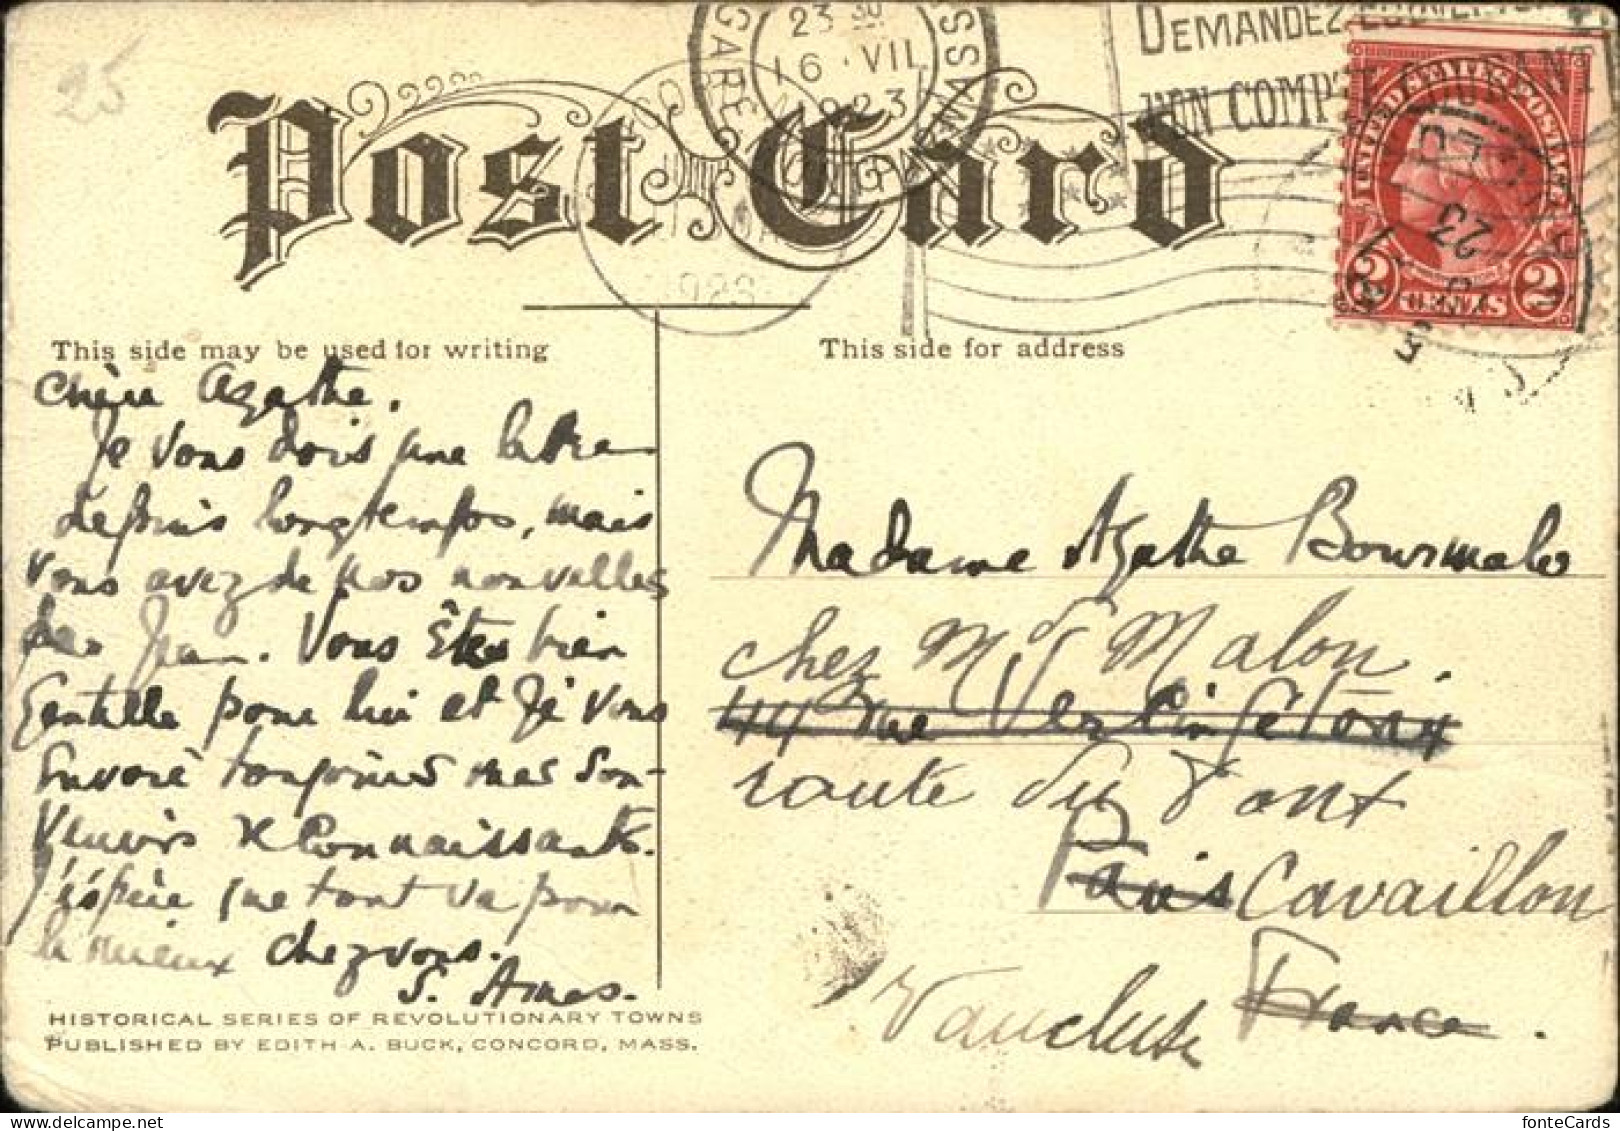 25
23 30
16 · VII
1923
GARE MONTPARNASSE
DEMANDEZ
UN COMPTE COURANT
UNITED STATES POSTAGE
2 CENTS 2
1923
Post Card
This side may be used for writing
This side for address
Chère Agathe.
Je vous dois une lettre
depuis longtemps, mais
vous avez de nos nouvelles
par Jean. Vous êtes bien
Gentille pour lui et Je vous
Envoie toujours mes Sou-
venirs reconnaissants.
J'éspère que tout va pour
le mieux chez vous.
S. Ames.
Madame Agathe
chez Mr Malon.
44 rue Vercingétorix
route du Pont
Paris Cavaillon
France.
Vaucluse
HISTORICAL SERIES OF REVOLUTIONARY TOWNS
PUBLISHED BY EDITH A. BUCK, CONCORD, MASS.
fonteCards